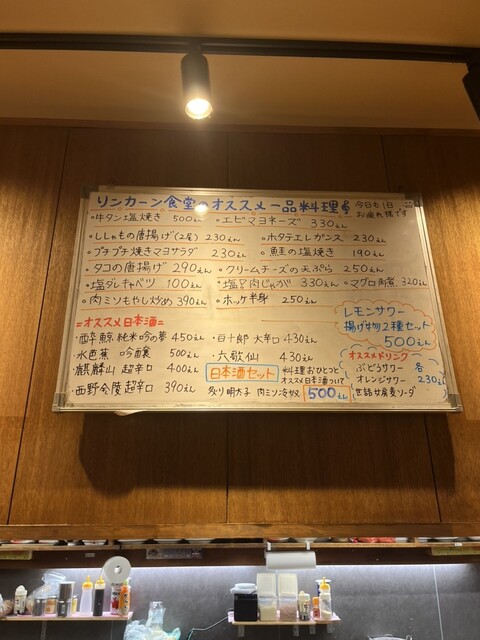 リンカーン食堂のオススメ一品料理
今日も1日
お疲れ様です
・牛タン塩焼き 500えん
・エビマヨネーズ 330えん
・ししゃもの唐揚げ(2尾) 230えん
・ホタテエレガンス 230えん
・プチプチ焼きマヨサラダ 230えん
・鮭の塩焼き 190えん
・タコの唐揚げ 290えん
・クリームチーズの天ぷら 250えん
・塩ダレキャベツ 100えん
・塩肉じゃが 330えん
・マグロ角煮 320えん
・肉ミソもやし炒め 390えん
・ホッケ半身 250えん
=オススメ日本酒=
・酔鯨 純米吟の夢 450えん
・百十郎 大辛口 430えん
・水芭蕉 吟醸 500えん
・六歌仙 430えん
・麒麟山 超辛口 400えん
・西野金陵 超辛口 390えん
日本酒セット
料理おひとつと
オススメ日本酒ついて
炙り明太子 肉ミソ冷奴
500えん
レモンサワー
揚げ物2種セット
500えん
オススメドリンク
ぶどうサワー
オレンジサワー
各230えん